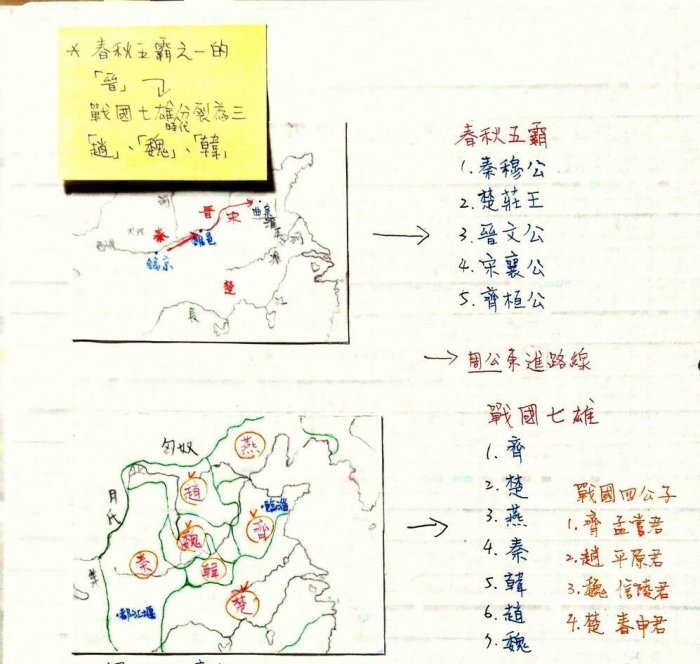 * 春秋五霸之一的
「晉」
戰國七雄分裂為三
時代
「趙」、「魏」、「韓」
河
曲阜
晉 宋
犬戎
秦
鎬京
雒邑
河
楚
長
江
春秋五霸
1. 秦穆公
2. 楚莊王
3. 晉文公
4. 宋襄公
5. 齊桓公
→ 周公東進路線
匈奴
燕
月氏
趙
臨淄
魏
齊
秦
韓
羌
楚
都江堰
戰國七雄
1. 齊
2. 楚
3. 燕
4. 秦
5. 韓
6. 趙
7. 魏
戰國四公子
1. 齊 孟嘗君
2. 趙 平原君
3. 魏 信陵君
4. 楚 春申君